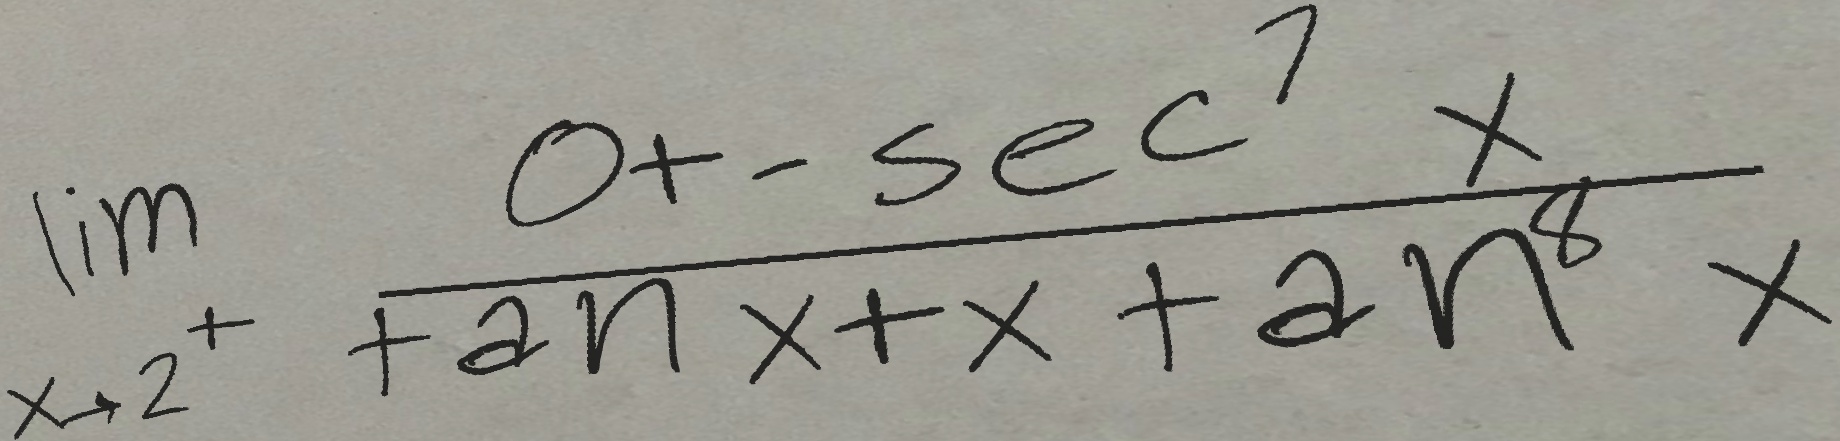 \lim_{x \to 2^+} \frac{0 + - \sec^7 x}{\tan x + x \tan^8 x}